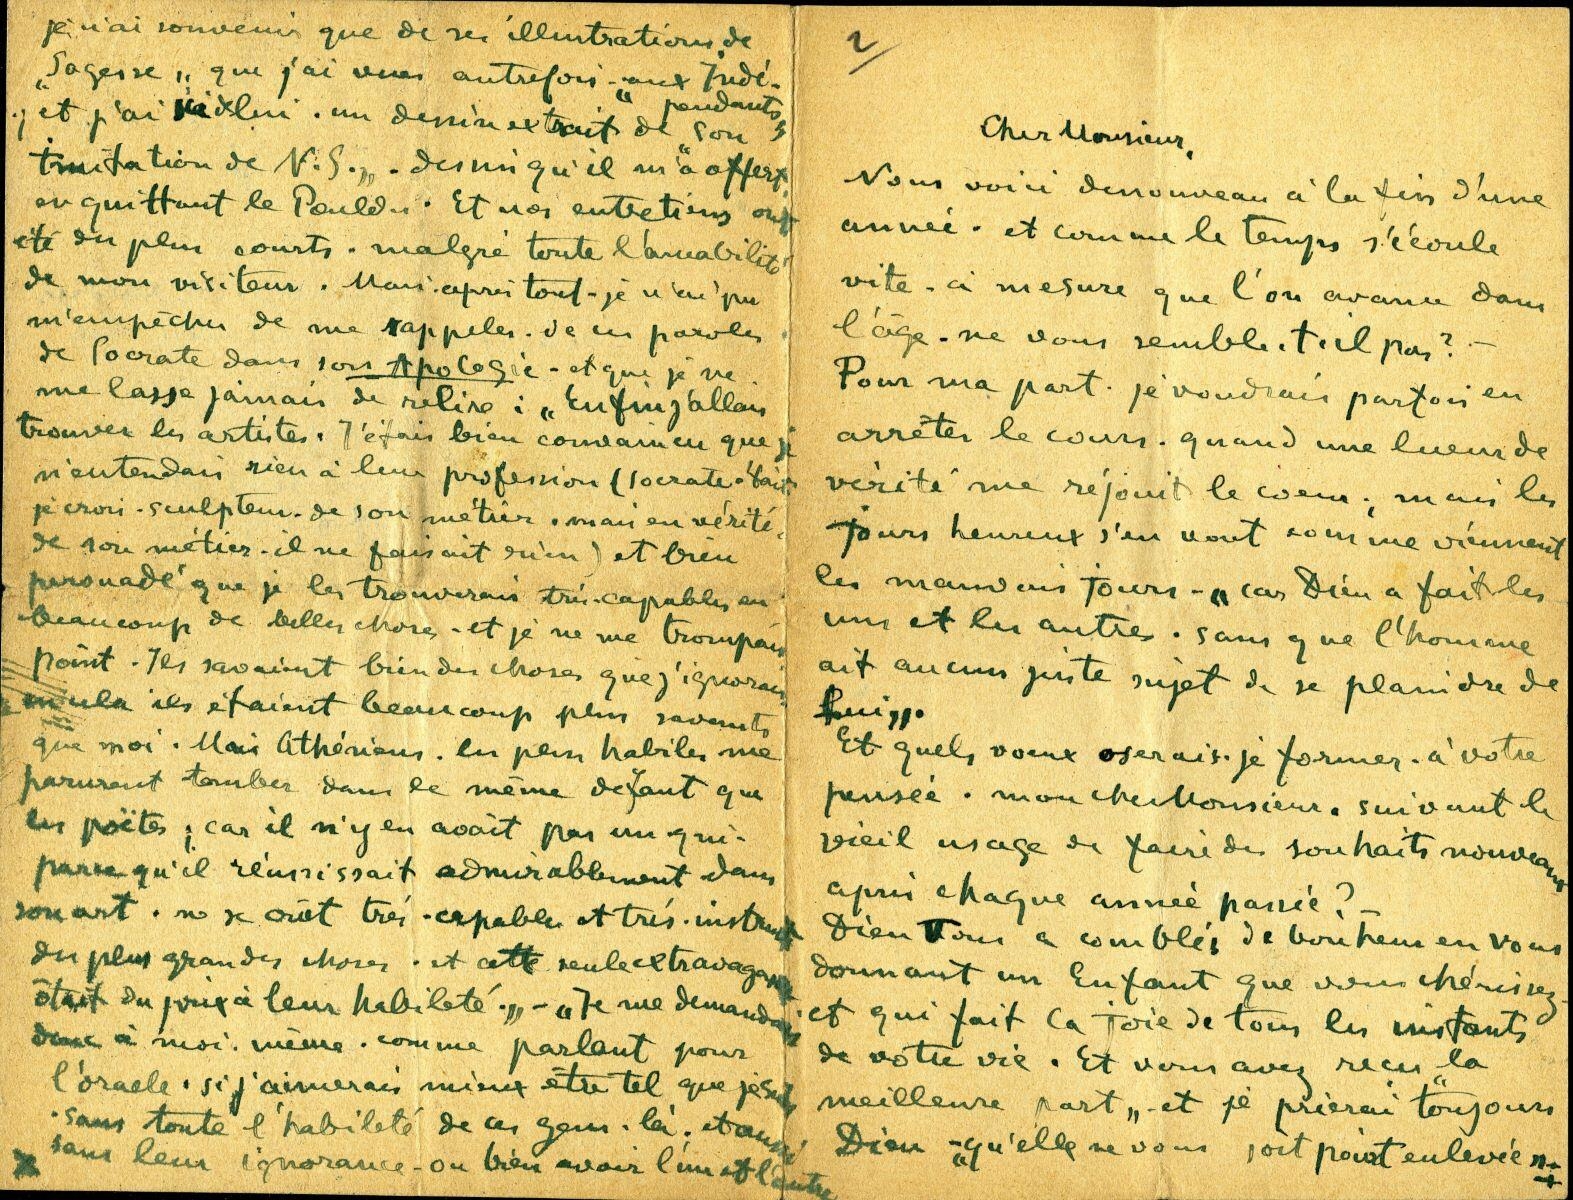 je n'ai souvenir que de ses illustrations de
"Sagesse" que j'ai vues autrefois - aux Indé-
pendants,
; et j'ai . un dessin extrait de "son
Imitation de N. S." . dessin qu'il m'a offert
en quittant le Pouldu . Et nos entretiens ont
été des plus courts . malgré toute l'amabilité
de mon visiteur . Mais . après tout - je n'ai pu
m'empêcher de me rappeler . de ces paroles
de Socrate dans son Apologie - et que je ne
me lasse jamais de relire : "Enfin j'allais
trouver les artistes . J'étais bien convaincu que je
n'entendais rien à leur profession (Socrate était
je crois . sculpteur . de son métier . mais en vérité
de son métier - il ne faisait rien) et bien
persuadé que je les trouverais très-capables en
beaucoup de belles choses - et je ne me trompais
point . Ils savaient bien des choses que j'ignorais
en cela ils étaient beaucoup plus savants
que moi . Mais Athéniens . les plus habiles me
parurent tomber dans le même défaut que
les poëtes ; car il n'y en avait pas un qui -
parce qu'il réussissait admirablement dans
son art . ne se crût très-capable et très-instruit
des plus grandes choses . et cette seule extravagance
ôtait du prix à leur habileté ." - "Je me demandais
donc à moi . même . comme parlant pour
l'oracle . si j'aimerais mieux être tel que je suis
. sans toute l'habileté de ces gens . là . et aussi
sans leur ignorance - ou bien avoir l'un et l'autre
2
Cher Monsieur,
Nous voici denouveau à la fin d'une
année . et comme le temps s'écoule
vite - à mesure que l'on avance dans
l'âge - ne vous semble . t . il pas ? -
Pour ma part . je voudrais parfois en
arrêter le cours . quand une lueur de
vérité me réjouit le coeur ; mais les
jours heureux s'en vont comme viennent
les mauvais jours - "car Dieu a fait les
uns et les autres . sans que l'homme
ait aucun juste sujet de se plaindre de
Lui" .
Et quels voeux oserais-je former . à votre
pensée . mon cher Monsieur . suivant le
vieil usage de faire des souhaits nouveaux
après chaque année passée ? -
Dieu Vous a comblés de bonheur en vous
donnant un Enfant que vous chérissez -
et qui fait la joie de tous les instants
de votre vie . Et vous avez reçu "la
meilleure part" - et je prierai toujours
Dieu - "qu'elle ne vous soit point enlevée" -